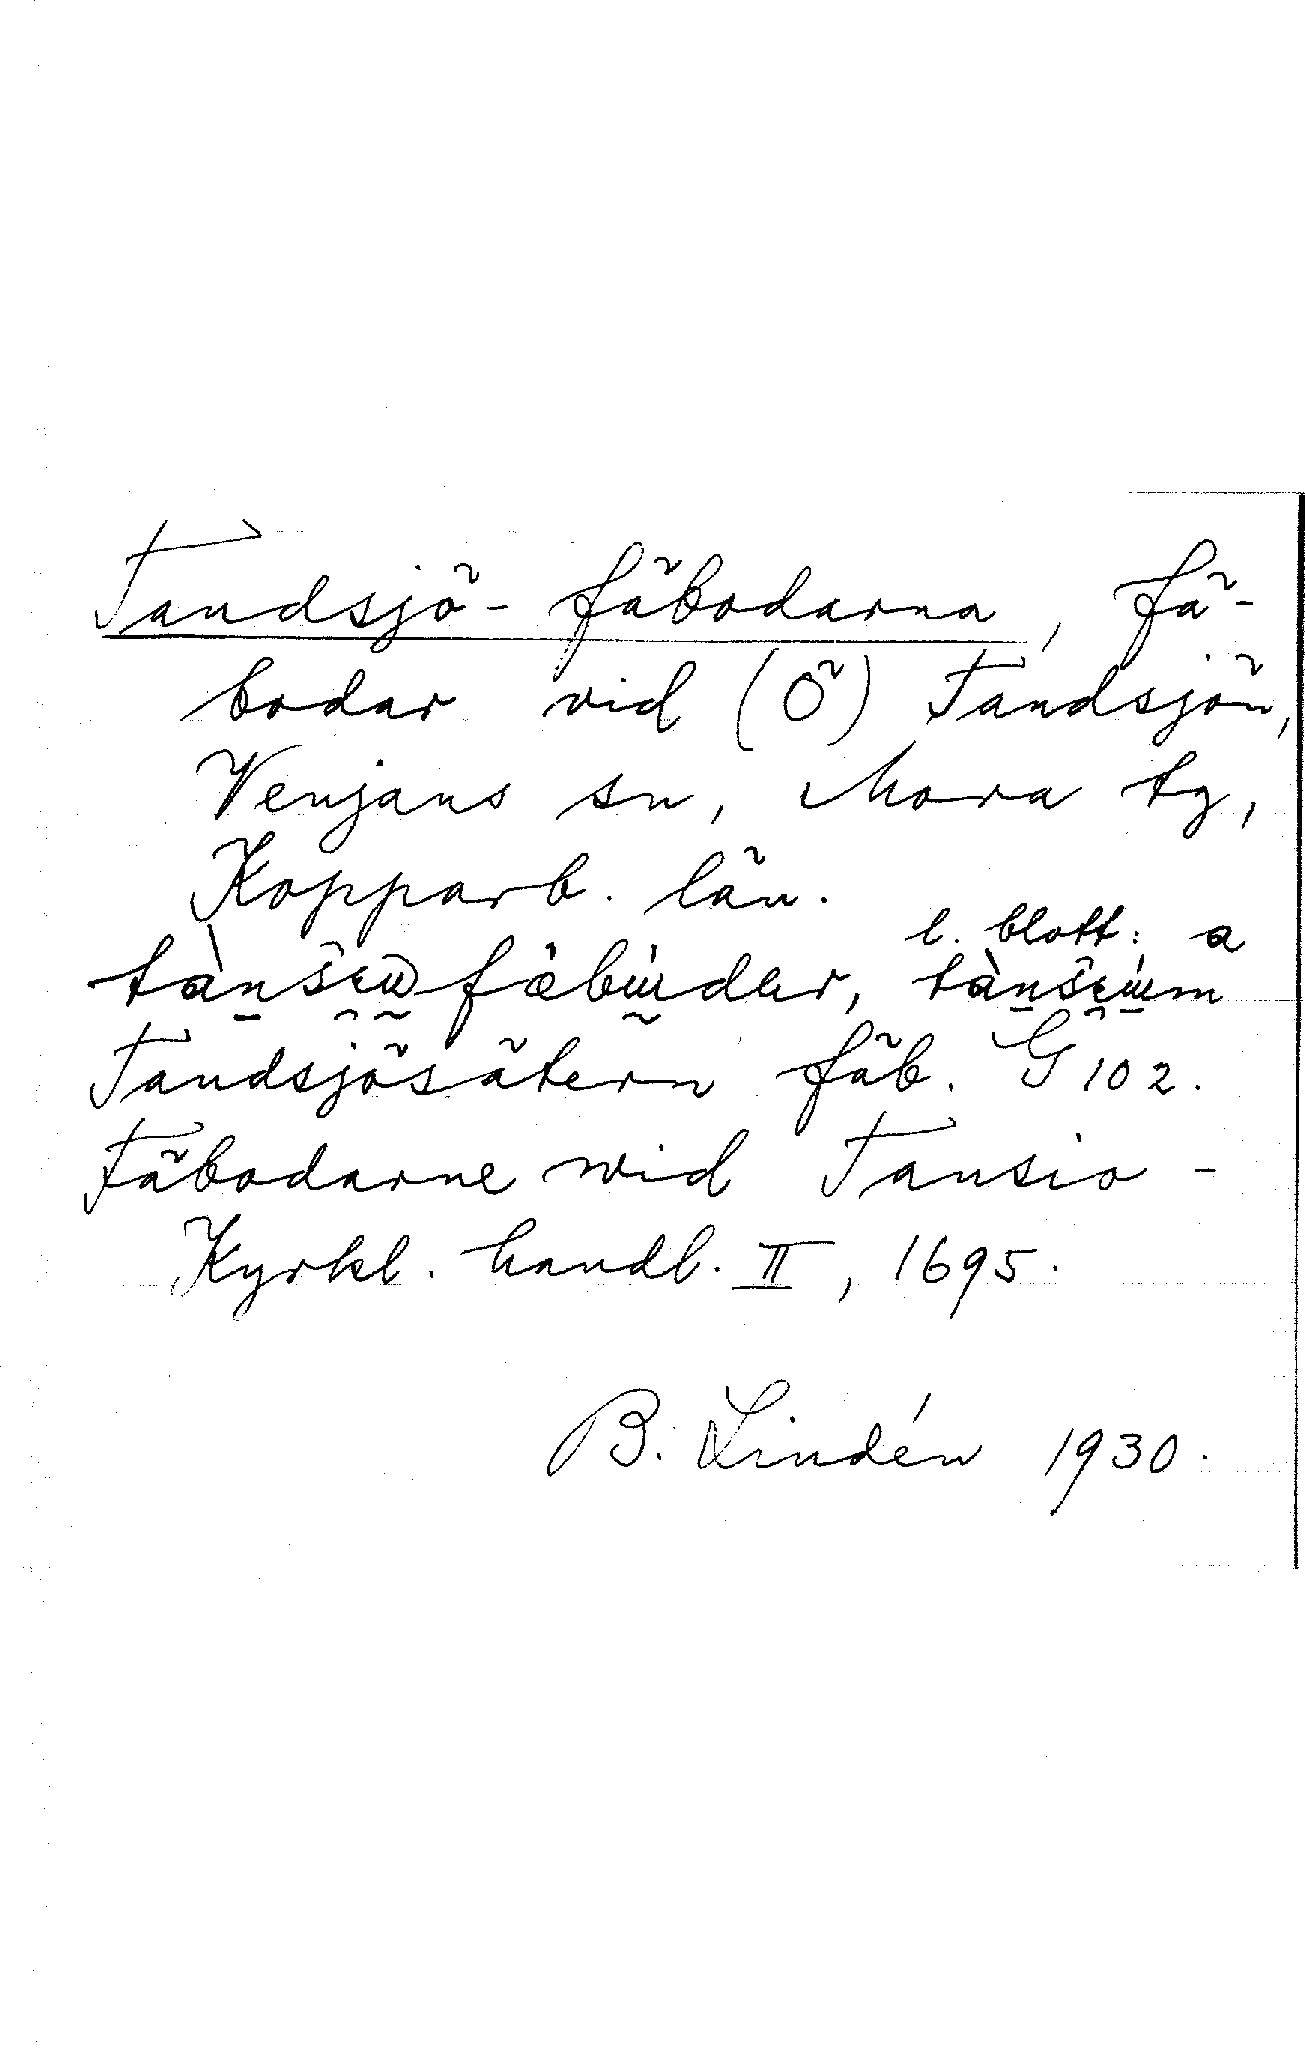 Tandsjö-fäbodarna, fä-
bodar vid (Ö) Tandsjön,
Venjans sn, Mora tg,
Kopparb. län.
l. blott: a
Tandsjösätern fäb. G 102.
Fäbodarne wid Tansio -
Kyrkl. handl. II, 1695.
B. Lindén 1930.